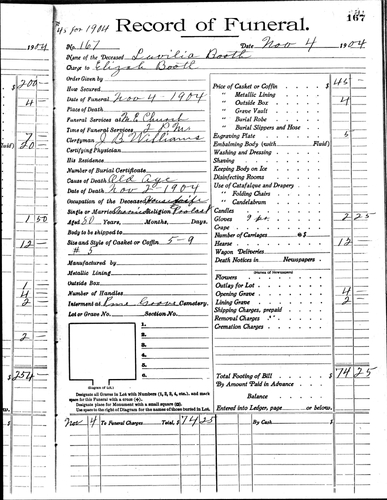 4s for 1904
Record of Funeral.
167
1904
No. 167
Date Nov 4 1904
Name of the Deceased Luvilia Booth
Charge to Elizah Booth
Order Given by
How Secured
Date of Funeral Nov 4 - 1904
Place of Death
Funeral Services at M E Church
Time of Funeral Services 2 P. M.
Clergyman J B Williams
Certifying Physician
His Residence
Number of Burial Certificate
Cause of Death Old Age
Date of Death Nov 2 - 1904
Occupation of the Deceased Housewife
Single or Married Married Religion Protest
Aged 80 Years, Months, Days
Body to be shipped to
Size and Style of Casket or Coffin 5-9
# 5
Manufactured by
Metallic Lining
Outside Box
Number of Handles
Interment at Pine Grove Cemetery.
Lot or Grave No. Section No.
1.
2.
3.
4.
5.
6.
(Diagram of Lot.)
Designate all Graves in Lot with Numbers (1, 2, 3, 4, etc.), and mark
space for this Funeral with a cross (+).
Designate place for Monument with a small square (□).
Use space to the right of Diagram for the names of those buried in Lot.
Price of Casket or Coffin $ 45
" Metallic Lining
" Outside Box 4
" Grave Vault
" Burial Robe
" Burial Slippers and Hose
Engraving Plate 5
Embalming Body (with Fluid)
Washing and Dressing
Shaving
Keeping Body on Ice
Disinfecting Rooms
Use of Catafalque and Drapery
" Folding Chairs
" Candelabrum
Candles
Gloves 9 pr. 2 25
Crape
Number of Carriages @ $
Hearse 12
Wagon Deliveries
Death Notices in Newspapers
(Names of Newspapers)
Flowers
Outlay for Lot
Opening Grave 4
Lining Grave 2
Shipping Charges, prepaid
Removal Charges
Cremation Charges
Total Footing of Bill $ 74 25
By Amount Paid in Advance
Balance
Entered into Ledger, page or below.
Nov 4 To Funeral Charges Total, $ 74 25 By Cash
200
4
7
fluid) 20
1 50
12
1
4
2
2
$ 254